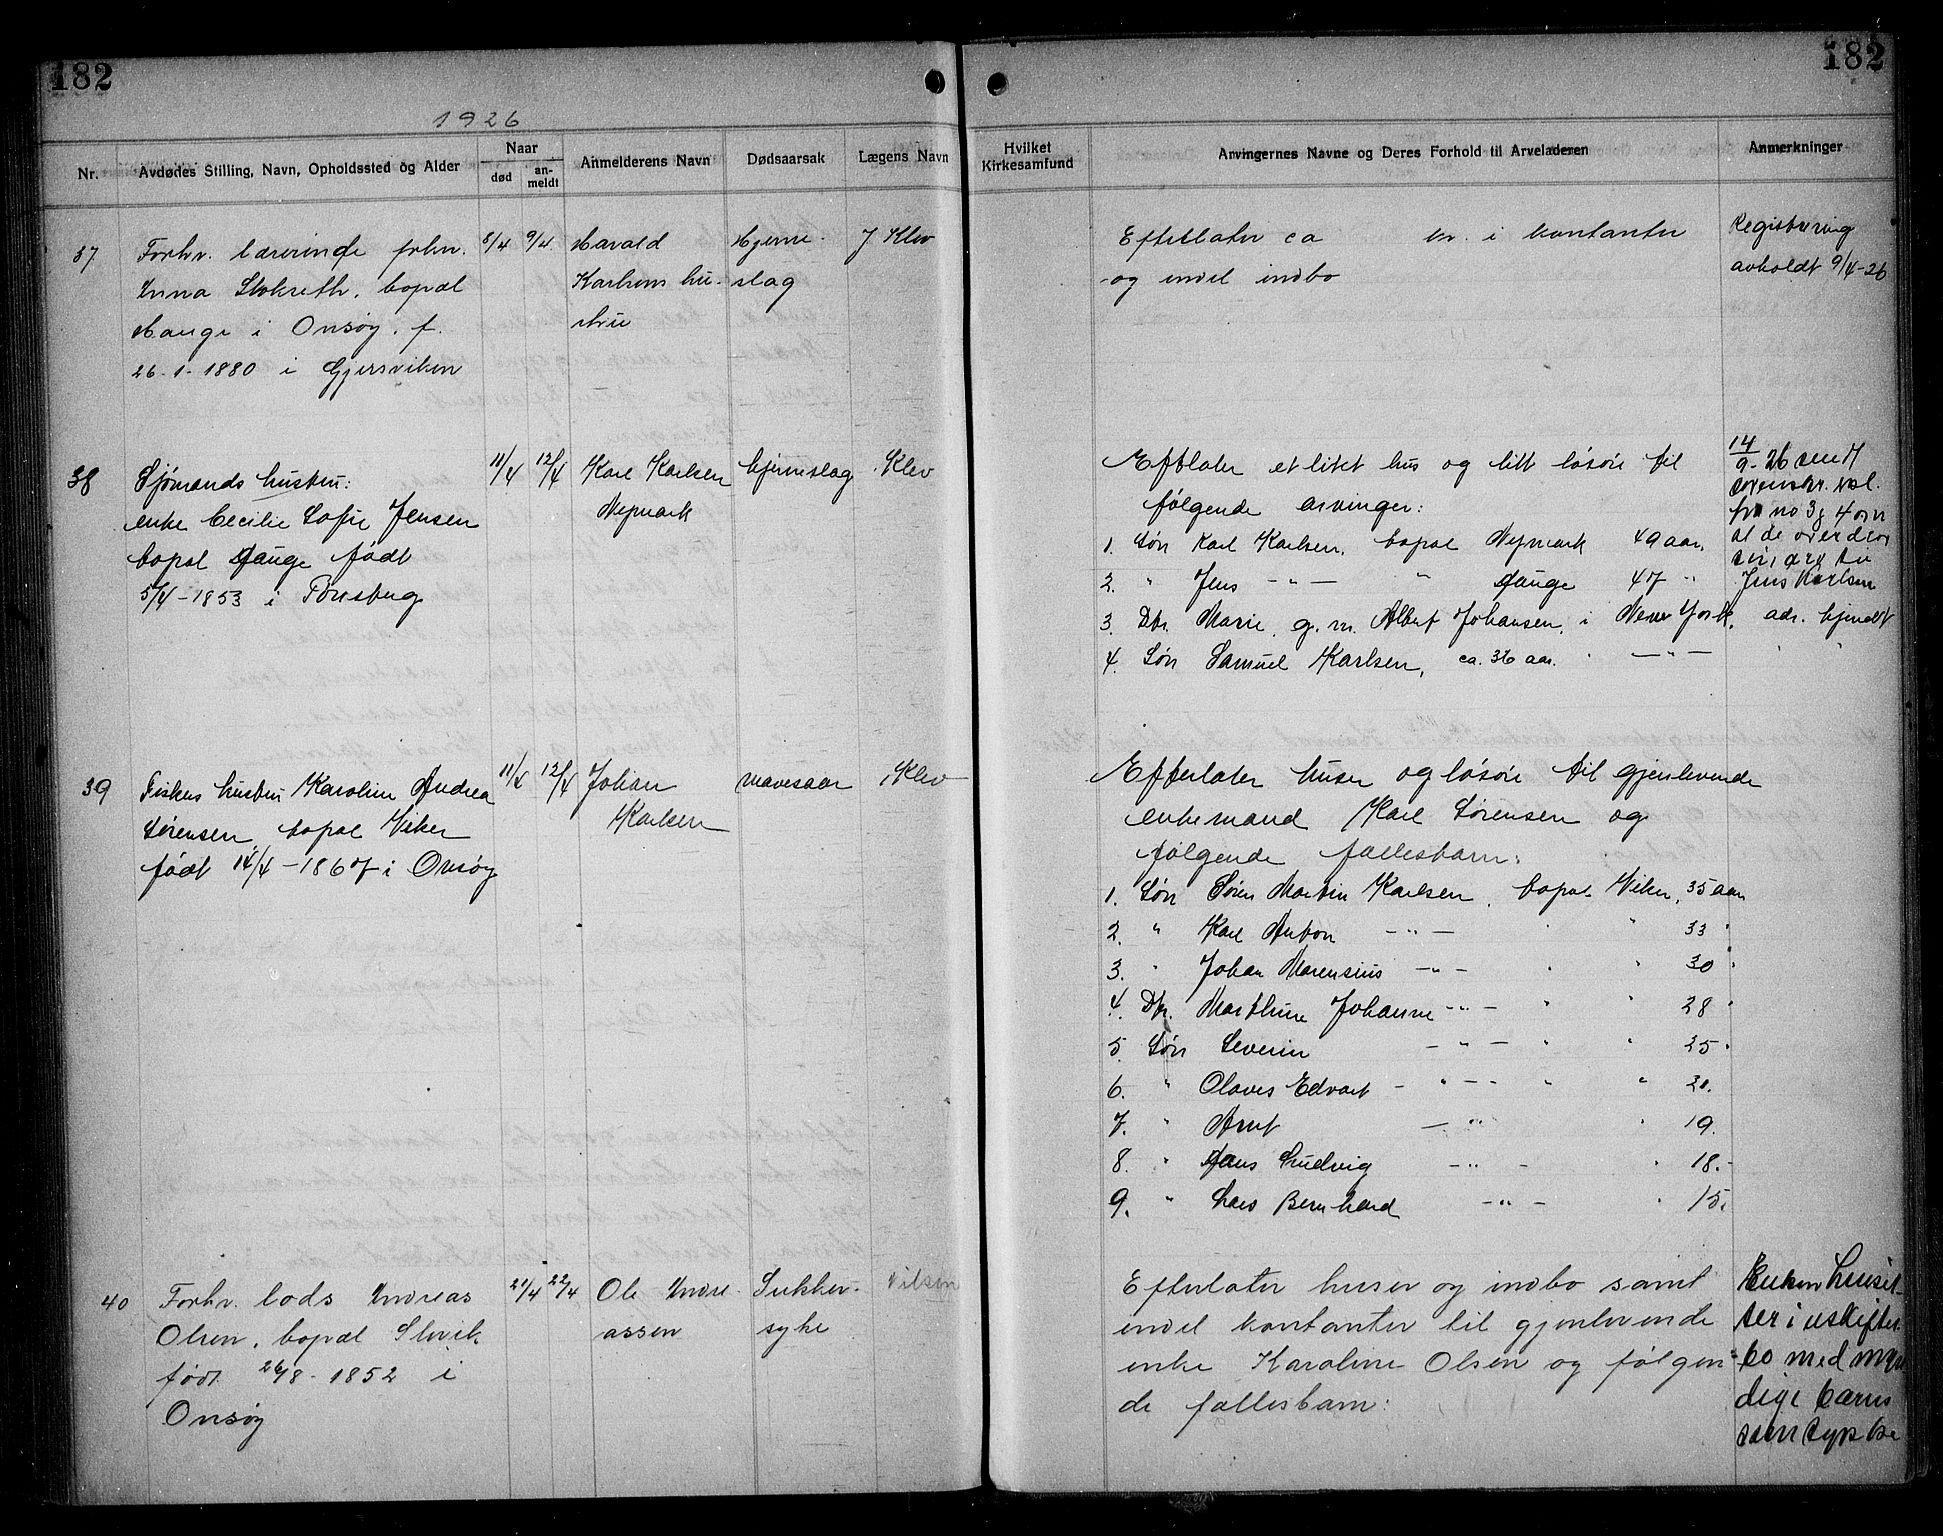 182
182
1926
Nr.
Avdødes Stilling, Navn, Opholdssted og Alder
Naar
død
an-
meldt
Anmelderens Navn
Dødsaarsak
Lægens Navn
Hvilket
Kirkesamfund
Arvingernes Navne og Deres Forhold til Arveladeren
Anmerkninger
37
Forhv. lærerinde frkn.
Inna Stokreth, bopæl
Hauge i Onsøy. f.
26-1-1880 i Gjersviken
8/4
9/4
Harald
Karlsens hu-
stru
Hjerne-
slag
J Klev
Efterlater ca kr. i kontanter
og endel indbo
Registrering
avholdt 9/4-26
38
Sjømands hustru:
enke Cecilie Sofie Jensen
bopæl Hauge født
5/4-1853 i Tønsberg
11/4
12/4
Karl Karlsen
Nepmark
hjerneslag
Klev
Efterlater et litet hus og litt løsøre til
følgende arvinger:
1. Søn Karl Karlsen, bopæl Nepmark 49 aar.
2. " Jens -"- " Hauge 47 "
3. Dtr. Marie, g. m. Albert Johansen, i New York, adr. ukjendt
4. Søn Samuel Karlsen, ca. 36 aar. " -"- " "
14/9-26 sendt
sorenskr.
fra no 3 og 4 om
at de overdrar
sin arv til
Jens Karlsen
39
Fiskers hustru Karoline Andrea
Sørensen, bopæl Viker
født 14/4-1867 i Onsøy
11/4
12/4
Johan
Karlsen
mavesaar
Klev
Efterlater huser og løsøre til gjenlevende
enkemand Karl Sørensen og
følgende fællesbarn:
1. Søn Søren Martin Karlsen, bopæl Viker, 35 aar
2. " Karl Anton -"- " " 33 "
3. " Johan Marensius -"- " " 30 "
4. Dtr. Marthine Johanne -"- " " 28 "
5. Søn Severin -"- " " 25 "
6. " Olaves Edvart -"- " " 21.
7. " Arnt -"- " 19.
8. " Hans Ludvig -"- " 18.-
9. " Lars Bernhard -"- " 15.
40
Forhv. lods Andreas
Olsen, bopæl Slevik
født 26/8-1852 i
Onsøy
21/4
22/4
Ole Andre-
assen
Sukker-
syke
Nilsen
Efterlater huser og indbo samt
endel kontanter til gjenlevende
enke Karoline Olsen og følgen-
de fællesbarn:
Enken hensit-
ter i uskiftet
bo med myn-
dige barns
samtykke